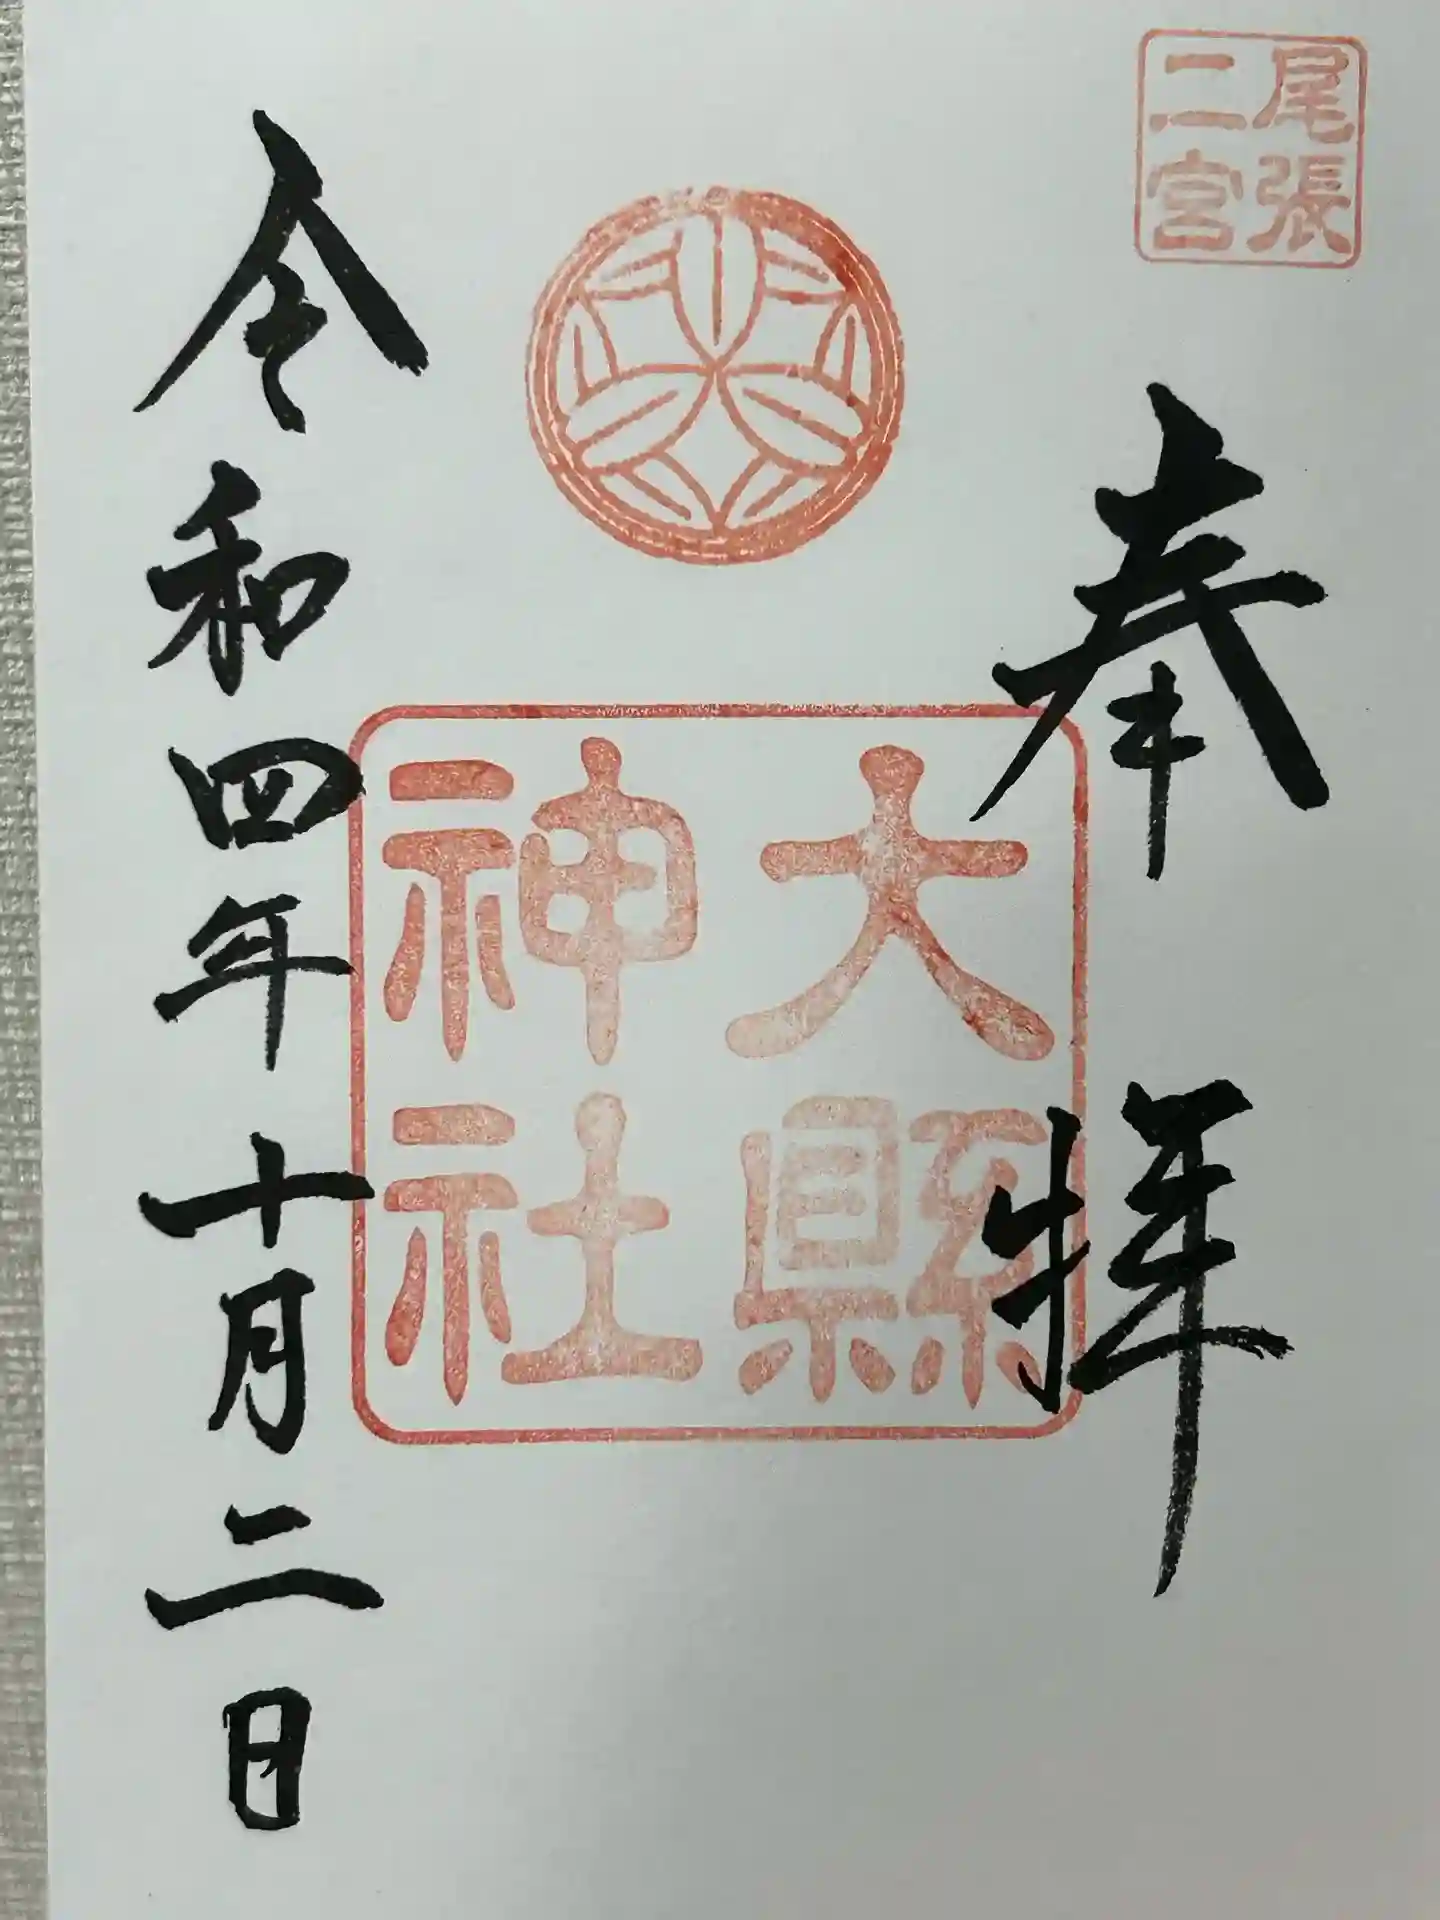 尾張
二宮
奉拝
大縣
神社
令和四年十月二日